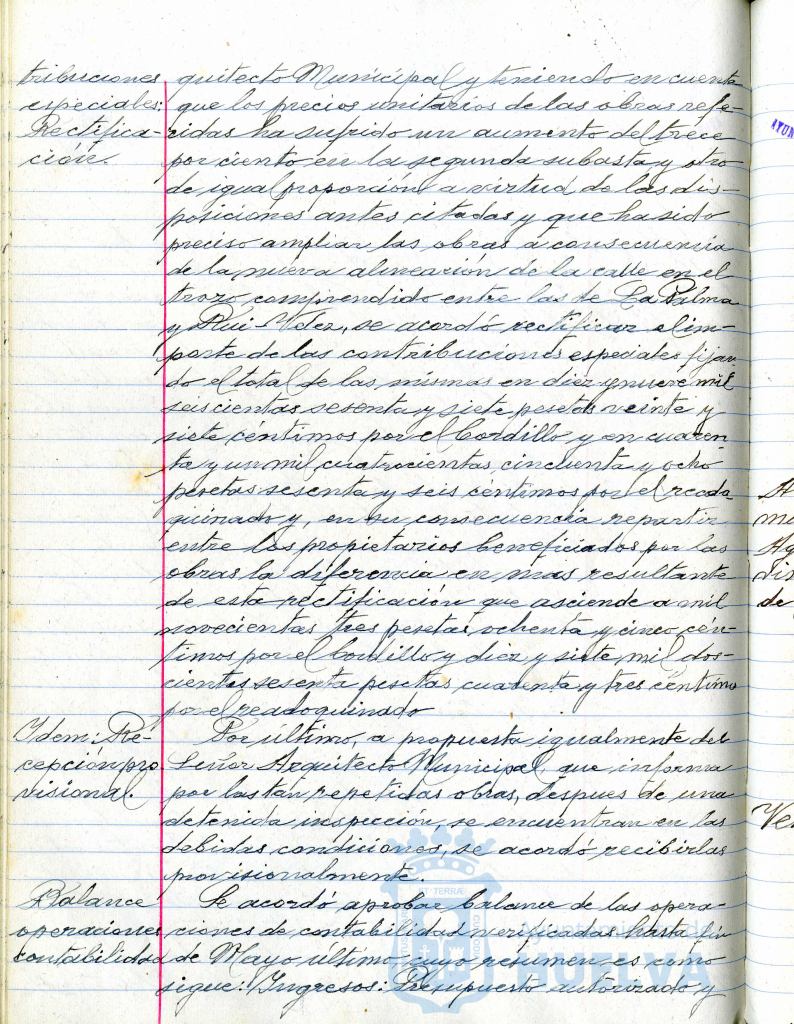 tribuciones
especiales:
Rectifica-
ción.
quitecto Municipal y teniendo en cuenta
que los precios unitarios de las obras refe-
ridas ha sufrido un aumento del trece
por ciento en la segunda subasta y otro
de igual proporción a virtud de las dis-
posiciones antes citadas y que ha sido
preciso ampliar las obras a consecuencia
de la nueva alineación de la calle en el
trozo comprendido entre las de La Palma
y Rui-Velez, se acordó rectificar el im-
porte de las contribuciones especiales fijan
do el total de las mismas en diez y nueve mil
seiscientas sesenta y siete pesetas veinte y
siete céntimos por el Bordillo y en cuaren
ta y un mil cuatrocientas cincuenta y ocho
pesetas sesenta y seis céntimos por el readо-
quinado y, en su consecuencia repartir
entre los propietarios beneficiados por las
obras la diferencia en mas resultante
de esta rectificación que asciende a mil
novecientas tres pesetas ochenta y cinco cén-
timos por el Bordillo y diez y siete mil dos-
cientas sesenta pesetas cuarenta y tres céntimos
por el readoquinado
Idem: Re-
cepción pro
visional.
Por último, a propuesta igualmente del
Señor Arquitecto Municipal que informa
por las tan repetidas obras, despues de una
detenida inspección, se encuentran en las
debidas condiciones, se acordó recibirlas
provisionalmente.
Balance
operaciones
contabilidad
Se acordó aprobar balance de las opera-
ciones de contabilidad verificadas hasta fin
de Mayo último, cuyo resumen es como
sigue: Ingresos: Presupuesto autorizado y
Ayuntamiento de
HUELVA